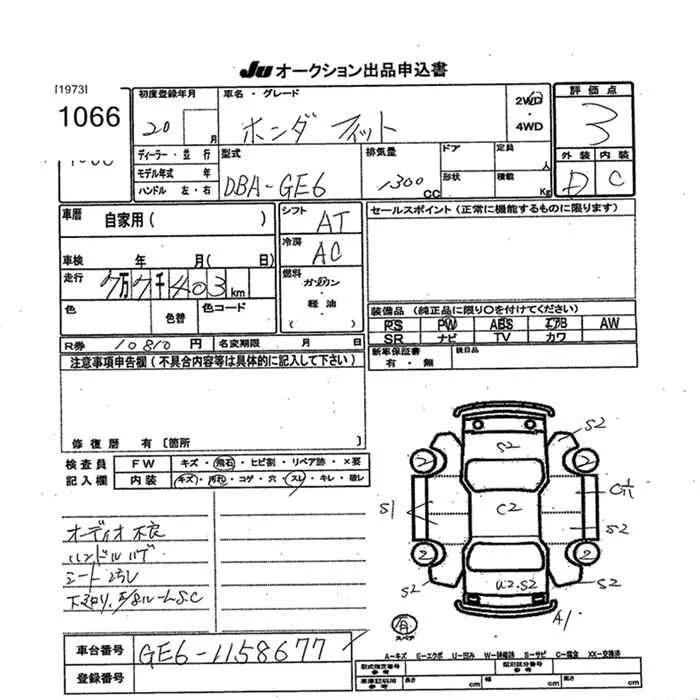 JU オークション出品申込書
[1973]
1066
初度登録年月
20 月
車名・グレード
ホンダ フィット
2WD
・
4WD
評価点
3
外装 内装
D C
ディーラー・並 行
モデル年式 年
ハンドル 左・右
型式
DBA-GE6
排気量
1300 CC
ドア
形状
定員 人
積載 Kg
車歴
自家用( )
シフト
AT
セールスポイント(正常に機能するものに限ります)
冷房
AC
車検 年 月( 日)
走行 7万7千403km
燃料
ガソリン
・
軽油
( )
色
色替
色コード
装備品(純正品に限り○を付けてください)
PS PW ABS エアB AW
SR ナビ TV カワ
R券 10810円
名変期限 月 日
新車保証書
有・無
後日品
注意事項申告欄(不具合内容等は具体的に記入して下さい)
修復歴 有〔箇所 〕
検査員
記入欄
FW キズ・飛石・ヒビ割・リペア跡・×要
内装 キズ・汚れ・コゲ・穴・スレ・キレ・破レ
オーディオ不良
シート汚レ
S2
S2
2
2
C2
S1
S2
2
2
S2
U2.S2
S2
A1
有
スペア
車台番号 GE6-1158677
登録番号
A-キズ E-エクボ U-凹み W-補修跡 S-サビ C-腐食 XX-交換済
型式指定番号
参考
類別区分番号
参考
長さ cm
幅 cm
高さ cm